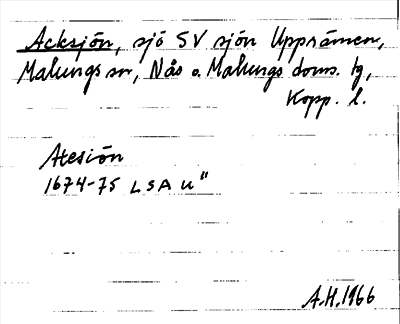 Acksjön, sjö SV sjön Upprämen,
Malungs sn, Nås o. Malungs doms. tg,
Kopp. l.
Atesiön
1674-75 LSA U"
A.H. 1966